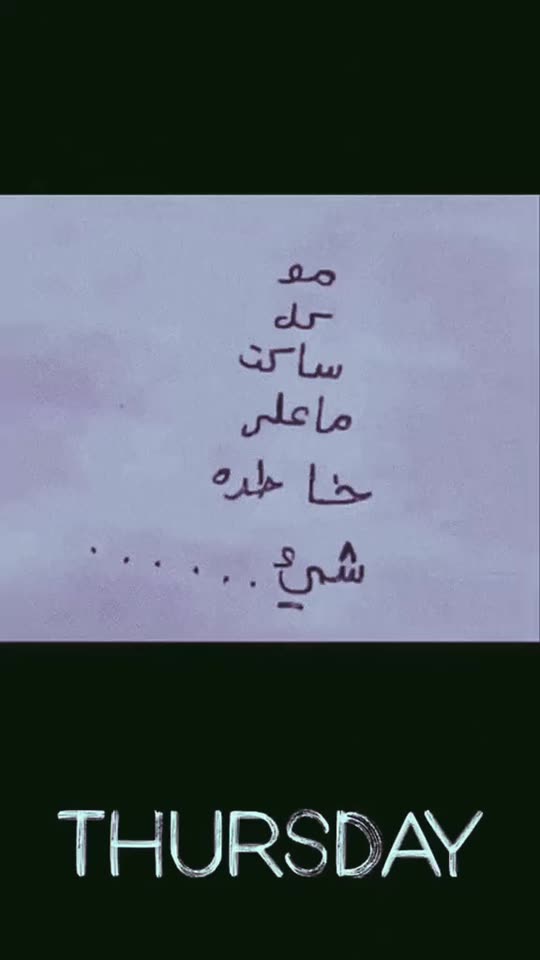 مو
كل
ساكت
ماعلى
خاطره
شيء......
THURSDAY